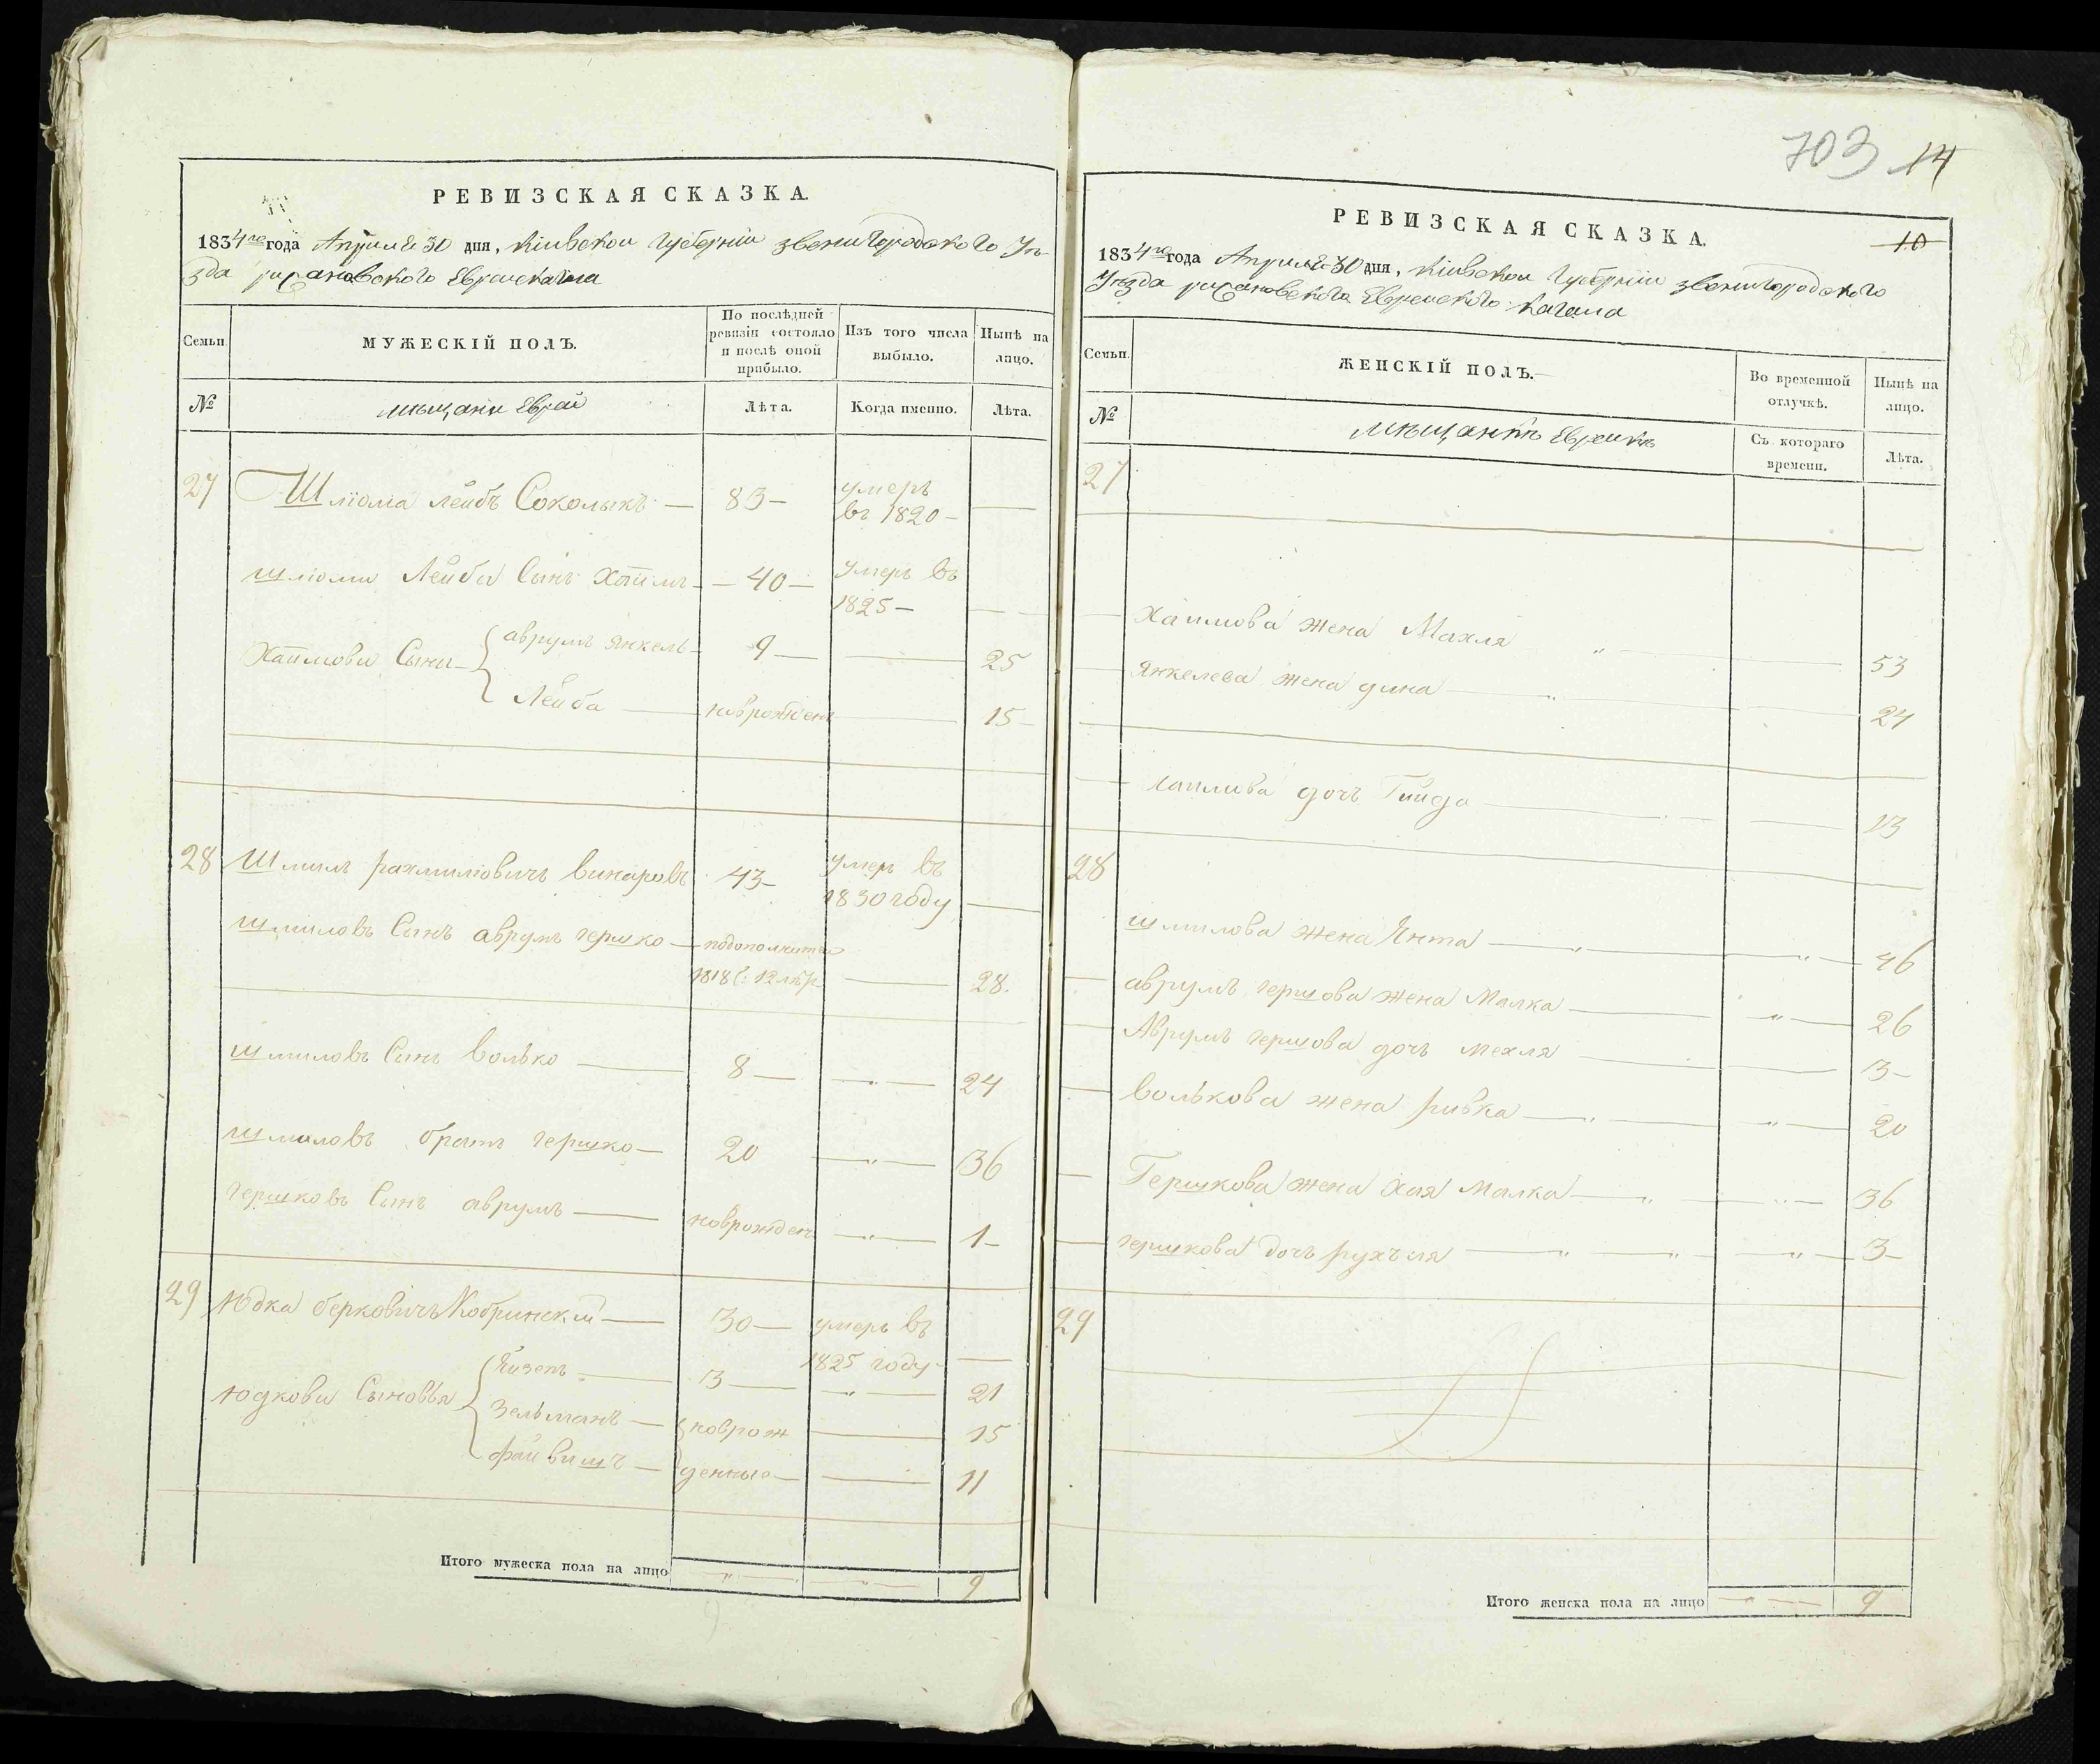 РЕВИЗСКАЯ СКАЗКА.
1834го года Апреля 30 дня, Кіивской Губерніи Звенигородского Уѣ-
зда рижановского Еврейс кагала
Семьи
МУЖЕСКІЙ ПОЛЪ.
По послѣдней ревизіи состояло и послѣ оной прибыло.
Изъ того числа выбыло.
Нынѣ на лицо.
№
мѣщани Евреи
Лѣта.
Когда именно.
Лѣта.
27 Шліома Лейбъ Соколыкъ — 83 — умеръ въ 1820 —
шліоми Лейби Сынъ Хаимъ — 40 — умеръ въ 1825 —
Хаимови Сыни
аврумъ Янкель — 9 — 25
Лейба — новрожден — 15
28 Шмилъ рахмиліовичъ винаровъ 43 — умеръ въ 1830 году —
шмиловъ Сынъ аврумъ гершко —
1818 28.
шмиловъ Сынъ волько — 8 — 24
шмиловъ братъ гершко — 20 — 36
гершковъ Сынъ аврумъ — новрожденъ — 1 —
29 Юдка берковичъ Кобринскій — 30 — умеръ въ 1825 году —
юдкови Сыновья
— 3 — 21
Зельманъ — новрож — 15
файвишъ — денные — 11
Итого мужеска пола на лицо 9
9
703 14
10
РЕВИЗСКАЯ СКАЗКА.
1834го года Апреля 30 дня, Кіивской Губерніи Звенигородского
Уѣзда рижановского Еврейского Кагала
Семьи.
ЖЕНСКІЙ ПОЛЪ.
Во временной отлучкѣ.
Нынѣ на лицо.
№
мѣщанкѣ Еврейкѣ
Съ котораго времени.
Лѣта.
27
Хаимова жена Махля — 53
Янкелева жена дина — 24
дочъ — 13
28
шмилова жена Янта — 46
аврумъ гершова жена Малка — 26
Аврумъ гершова дочъ мехля — 3 —
волькова жена ривка — 20
Гершкова жена Хая Малка — 36
гершкова дочъ рухъля — 3 —
29
Итого женска пола на лицо 9